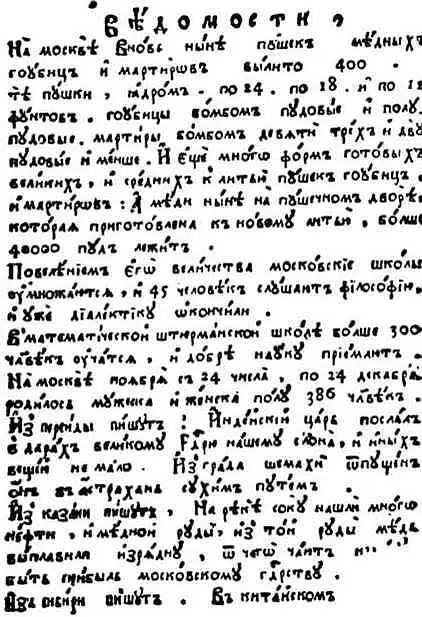 ВѢ́ДОМОСТИ,
На москвѣ̀ вновь ны́нѣ пу́шекъ мѣ́дныхъ
гоубицъ и҆ мартиров̾ъ вы́лито 400.
тѣ̀ пушки, ꙗ҆дро́мъ. по 24. по 18. и҆ по 12
фу́нтовъ. гоубицы бо́мбомъ пудовы́е и҆ полу
пудовые. марти́ры бо́мбомъ девяти̇̀ тре́хъ и҆ дву
пудовые и҆ ме́нше. И҆ є҆щѐ мно́гѡ фо́рмъ гото́выхъ
вели́кихъ, и҆ сре́днихъ к литью̀ пу́шекъ гоубицъ,
и҆ марти́рѡвъ: А҆ мѣ́ди ны́нѣ на пу́шечномъ дворѣ̀,
кото́рая приготовлена къ но́вому литью̀, бо́лше
40000 пу́дъ лежи́тъ.
Повелѣ́нїемъ є҆гѡ̀ вели́чества моско́вскїе шко́лы
ᲂу҆множа́ются, и҆ 45 человѣ́къ слу́шаютъ фїлосо́фїю,
и҆ уже дїале́ктїку ѡ҆ко́нчили.
В̾ математи́ческой штюрма́нской шко́лѣ бо́лше 300
чл҃вѣ́къ ᲂу҆ча́тся, и҆ до́брѣ нау́ку прїе́млютъ.
На москвѣ̀ ноября̀ съ 24 числа̀, по 24 декабря̀
роди́лось му́жеска и҆ же́нска по́лу 386 чл҃вѣ́къ.
И҆з̾ перси́ды пи́шутъ: И҆нде́йскїй ца́рь посла́лъ
в̾ дара́хъ вели́кому Гдⷭ҇рю на́шему слона̀, и҆ и҆ны́хъ
веще́й не ма́ло. И҆з̾ гра́да шемахи̇̀ ѿпу́щенъ
ѻ҆́нъ в̾ а҆́страхань сухи́мъ путе́мъ.
И҆з̾ каза́ни пи́шутъ, На рѣкѣ̀ соку̀ нашли̇̀ мно́гѡ
не́фти, и҆ мѣ́дной руды̀, и҆з̾ то́й руды̀ мѣ́дь
вы́плавили и҆зря́дну, ѿ чегѡ̀ ча́ютъ
бы́ть при́быль моско́вскому гдⷭ҇рству.
И҆з̾ сиби́ри пи́шутъ. В̾ кита́йскомъ